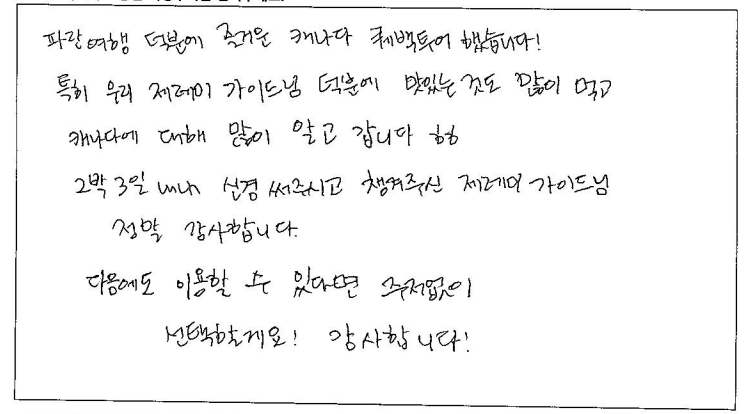 파란여행 덕분에 즐거운 캐나다 퀘백투어 했습니다!
특히 우리 제레미 가이드님 덕분에 맛있는 것도 많이 먹고
캐나다에 대해 많이 알고 갑니다 ㅎㅎ
2박 3일 내내 신경 써주시고 챙겨주신 제레미 가이드님
정말 감사합니다.
다음에도 이용할 수 있다면 주저없이
선택할게요! 감사합니다!